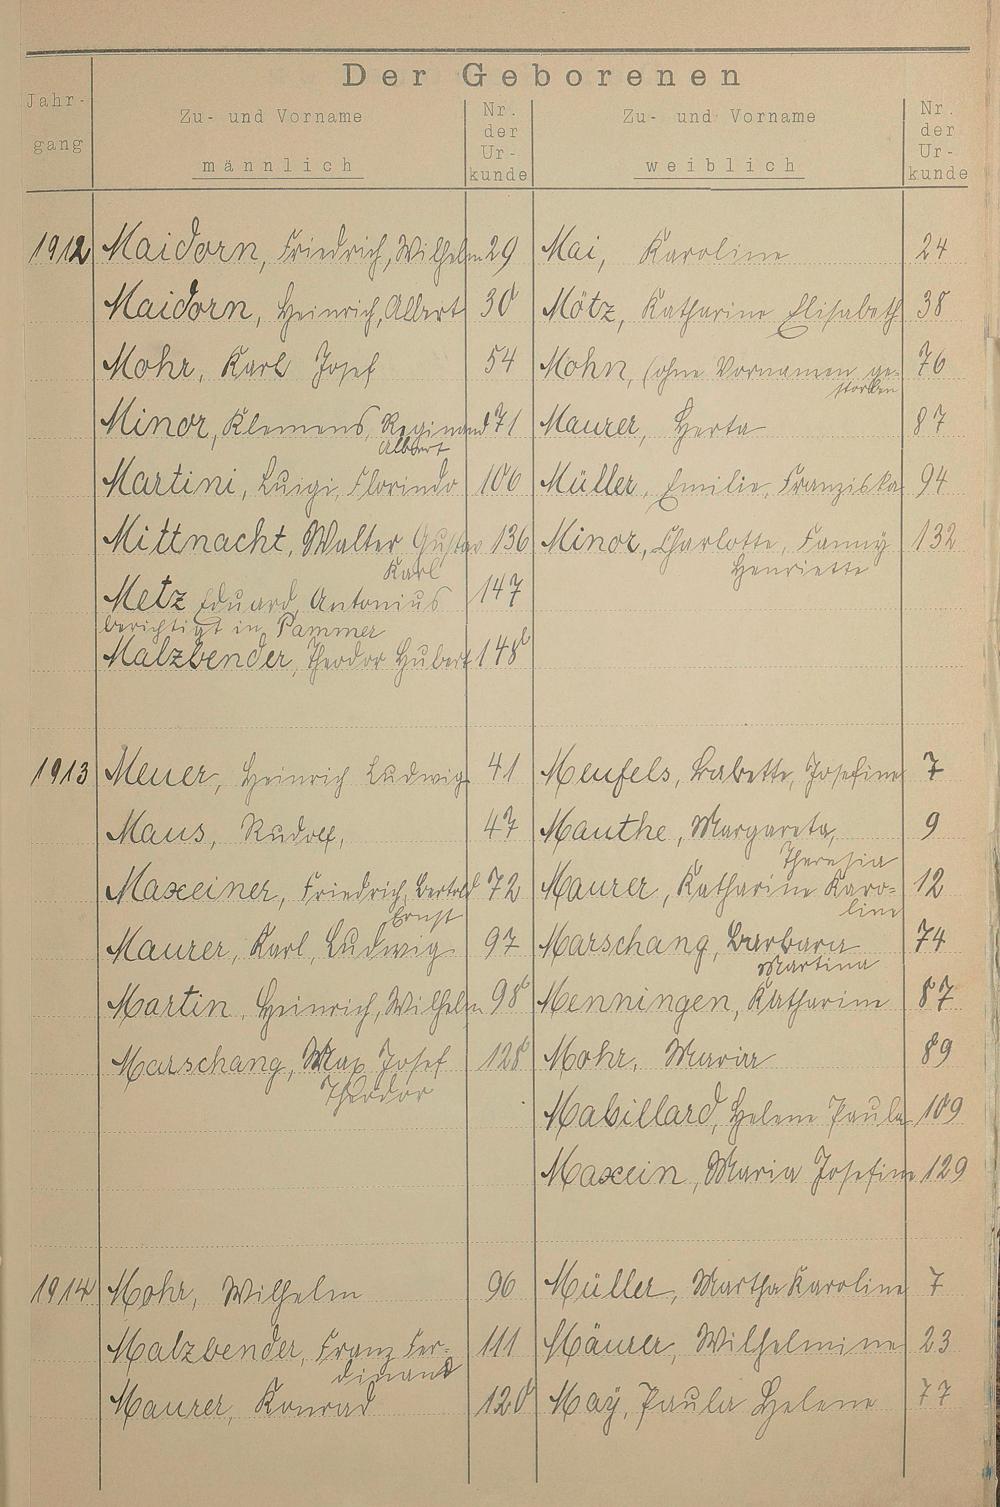 Der Geborenen
Jahr-
gang
Zu- und Vorname
männlich
Nr.
der
Ur-
kunde
Zu- und Vorname
weiblich
Nr.
der
Ur-
kunde
1912 Maidorn, Friedrich, Wilhelm 29 Mai, Karoline 24
Maidorn, Heinrich, Albert 30 Mötz, Katharine Elisabeth 38
Mohr, Karl Josef 54 Mohn, (ohne Vornamen ge- 76
storben
Minor, Klemens, Reginand 71 Maurer, Herta 87
Albert
Martini, Luigi, Florindo 106 Müller, Emilie, Franziska 94
Mittnacht, Walter Gustav 136 Minor, Charlotte, Fanny 132
Karl Henriette
Metz Eduard, Antonius 147
berichtigt in Pammer
Malzbender, Theodor Hubert 148
1913 Meuer, Heinrich Ludwig 41 Meufels, Babette, Josefine 7
Maus, Rudolf, 47 Mauthe, Margareta, 9
Theresia
Maxeiner, Friedrich, Bertold 72 Maurer, Katharine Karo- 12
Ernst line
Maurer, Karl, Ludwig 97 Marschang, Barbara 74
Martina
Martin, Heinrich, Wilhelm 98 Menningen, Katharine 87
Marschang, Max Josef 128 Mohr, Maria 89
Theodor
Mabillard, Helene Paula 109
Maxein, Maria Josefine 129
1914 Mohr, Wilhelm 96 Müller, Martha Karoline 7
Malzbender, Franz Fer- 111 Mäurer, Wilhelmine 23
dinand
Maurer, Konrad 120 May, Paula Helene 77